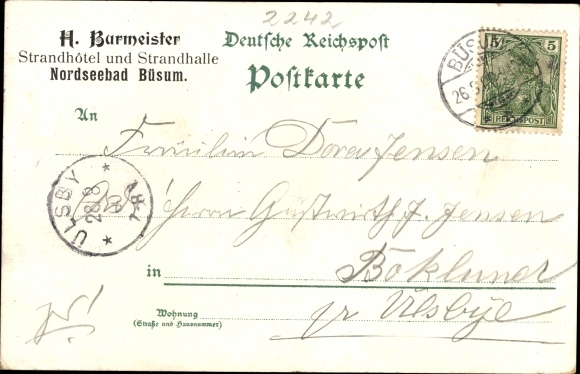 2242
H. Burmeister
Strandhôtel und Strandhalle
Nordseebad Büsum.
Deutsche Reichspost
Postkarte
BÜSUM
26
5 5
REICHSPOST
An
Fräulein Dora Jensen
ÜLSBY
28 8
Herrn Gustwirth J. Jensen
in Böklund
Wohnung
(Straße und Hausnummer)
pr Ülsbye